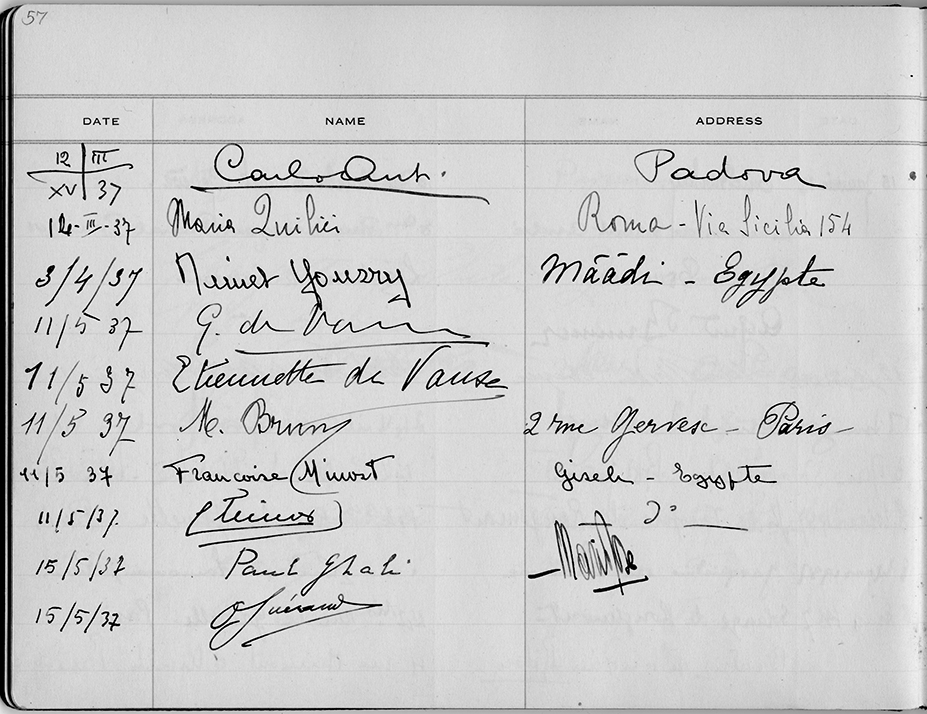 57
DATE NAME ADDRESS
12 III XV 37 Carlo Anti Padova
12-III-37 Maria Quilici Roma - Via Sicilia 154
3/4/37 Youssry Määdi - Egypte
11/5 37 G. de
11/5 37 Etiennette de Vause
11/5 37 M. Bruny 2 rue Gervese - Paris -
11/5 37 Françoise Minost Giseh - Egypte
11/5/37 d°
15/5/37 Paul Ghali
15/5/37